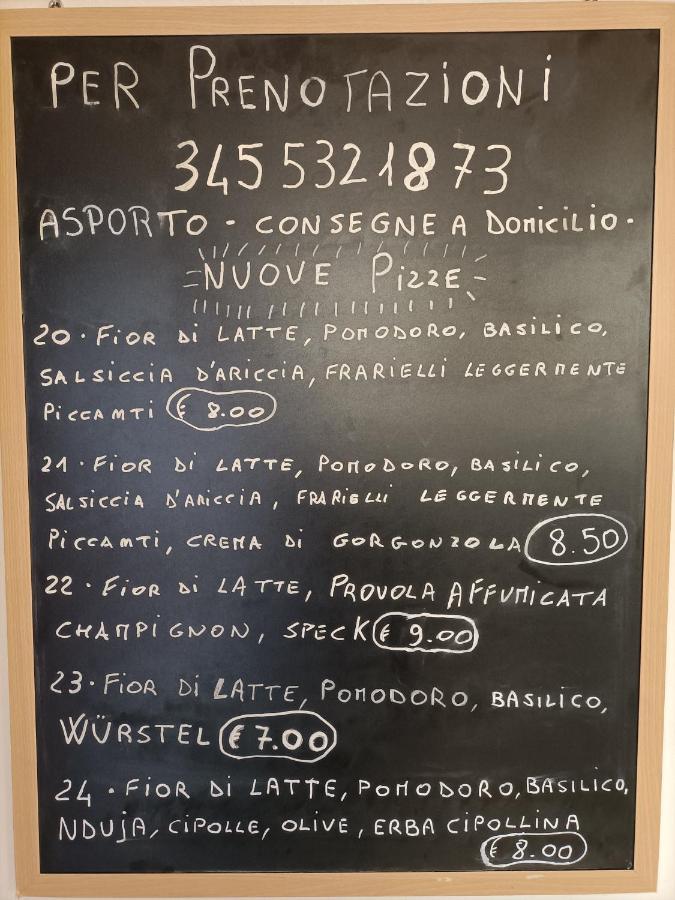 PER PRENOTAZIONI
345 5321873
ASPORTO - CONSEGNE A DOMICILIO.
NUOVE PIZZE
20. FIOR DI LATTE, POMODORO, BASILICO,
SALSICCIA D'ARICCIA, FRARIELLI LEGGERMENTE
PICCAMTI € 8.00
21. FIOR DI LATTE, POMODORO, BASILICO,
SALSICCIA D'ARICCIA, FRARIELLI LEGGERMENTE
PICCAMTI, CREMA DI GORGONZOLA 8.50
22. FIOR DI LATTE, PROVOLA AFFUMICATA
CHAMPIGNON, SPECK € 9.00
23. FIOR DI LATTE, POMODORO, BASILICO,
WÜRSTEL € 7.00
24. FIOR DI LATTE, POMODORO, BASILICO,
NDUJA, CIPOLLE, OLIVE, ERBA CIPOLLINA
€ 8.00